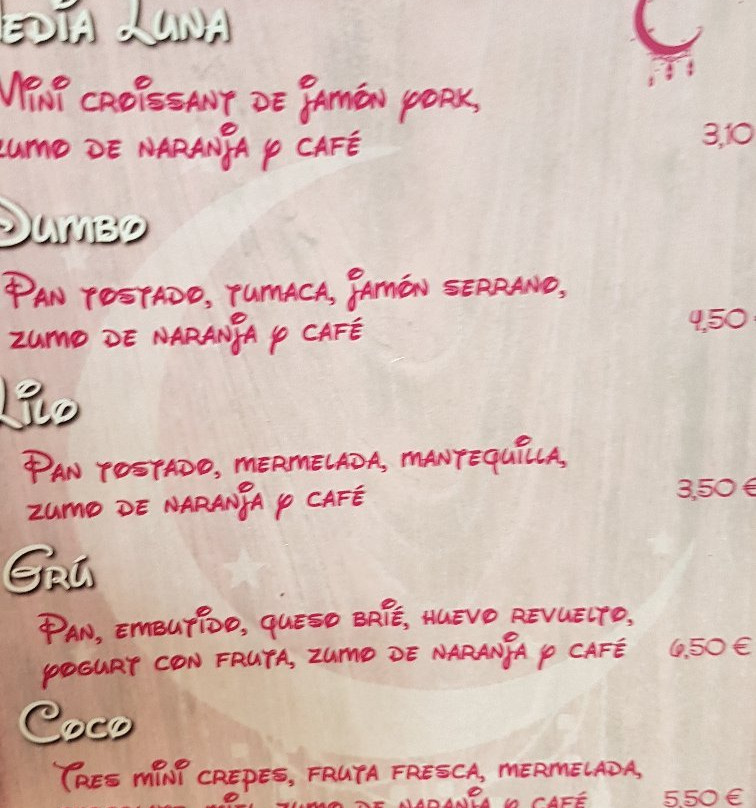 Media Luna
Mini croissant de jamón york,
zumo de naranja y café
3,10
Dumbo
Pan tostado, tumaca, jamón serrano,
zumo de naranja y café
4,50
Lilo
Pan tostado, mermelada, mantequilla,
zumo de naranja y café
3,50 €
Grú
Pan, embutido, queso brié, huevo revuelto,
yogurt con fruta, zumo de naranja y café
6,50 €
Coco
Tres mini crepes, fruta fresca, mermelada,
miel, zumo de naranja y café
5,50 €